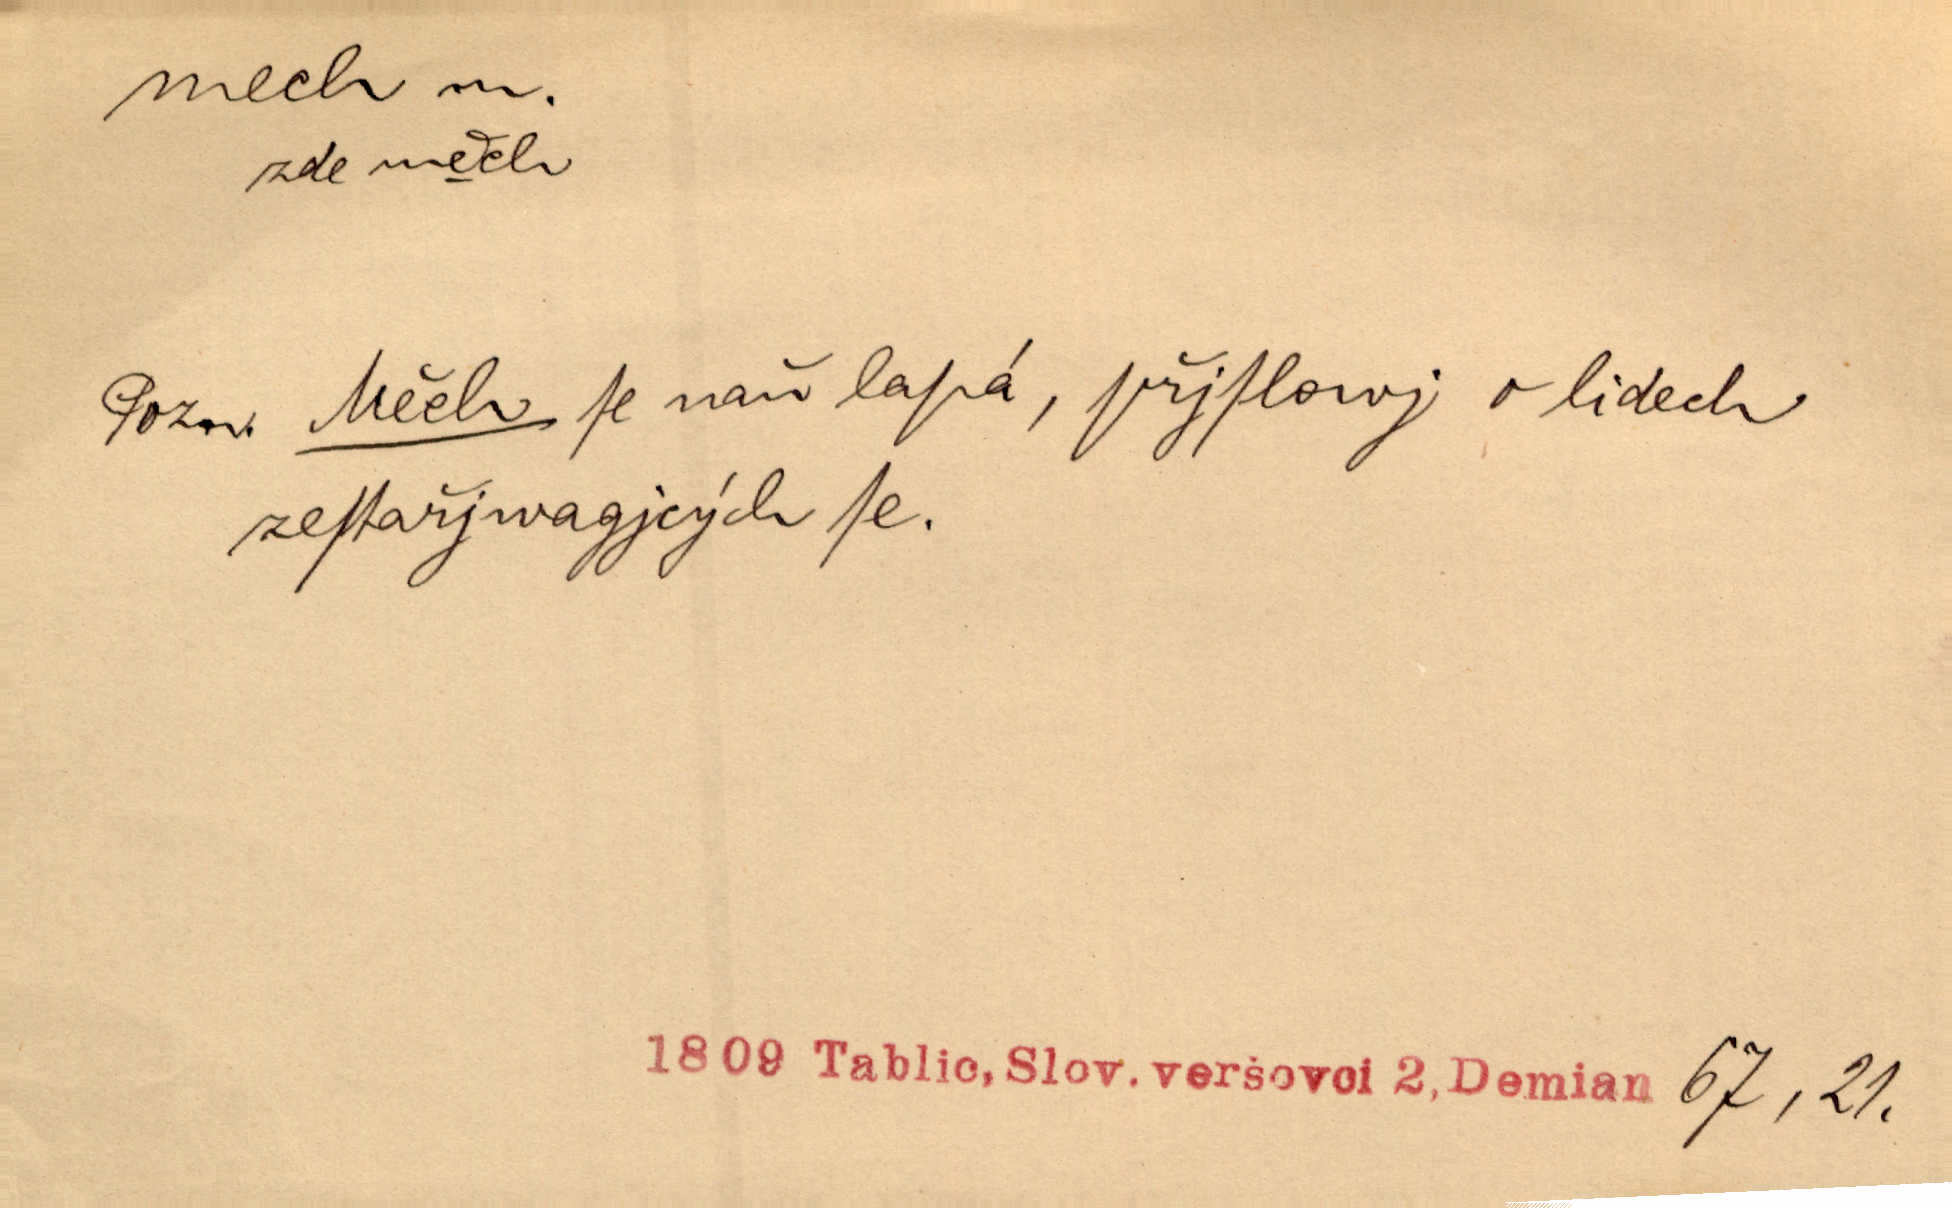 mech m.
zde měch
Pozn. Měch ſe naň lapá, přjſlowj o lidech
zeſtařjwagjcých ſe.
1809 Tablic, Slov. veršovci 2, Demian 67, 21.